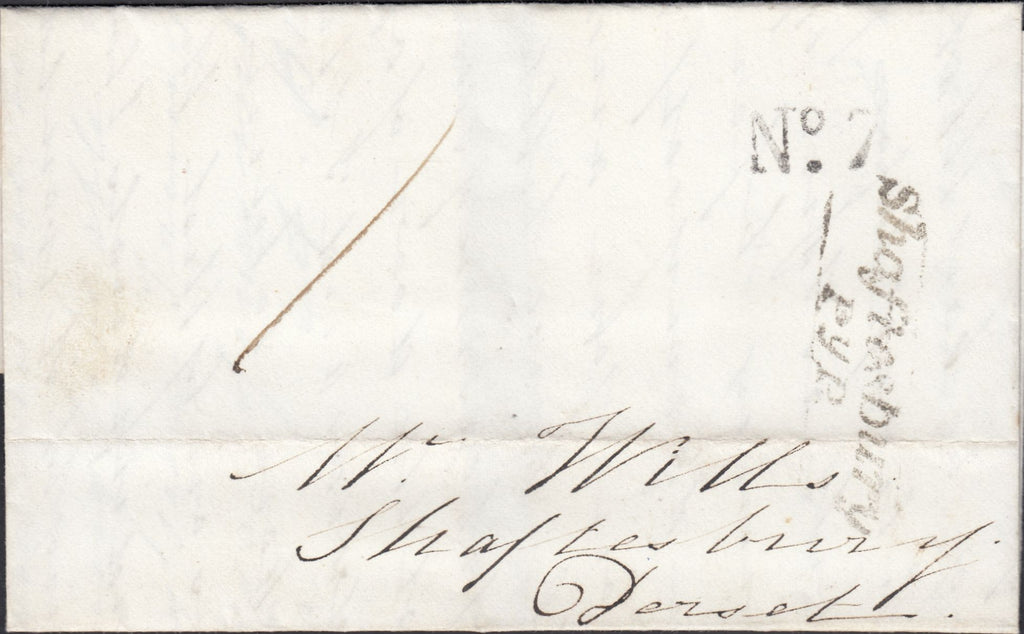 No. 7
Shaftesbury
Py P
/
Mr Wills
Shaftesbury.
Dorset.